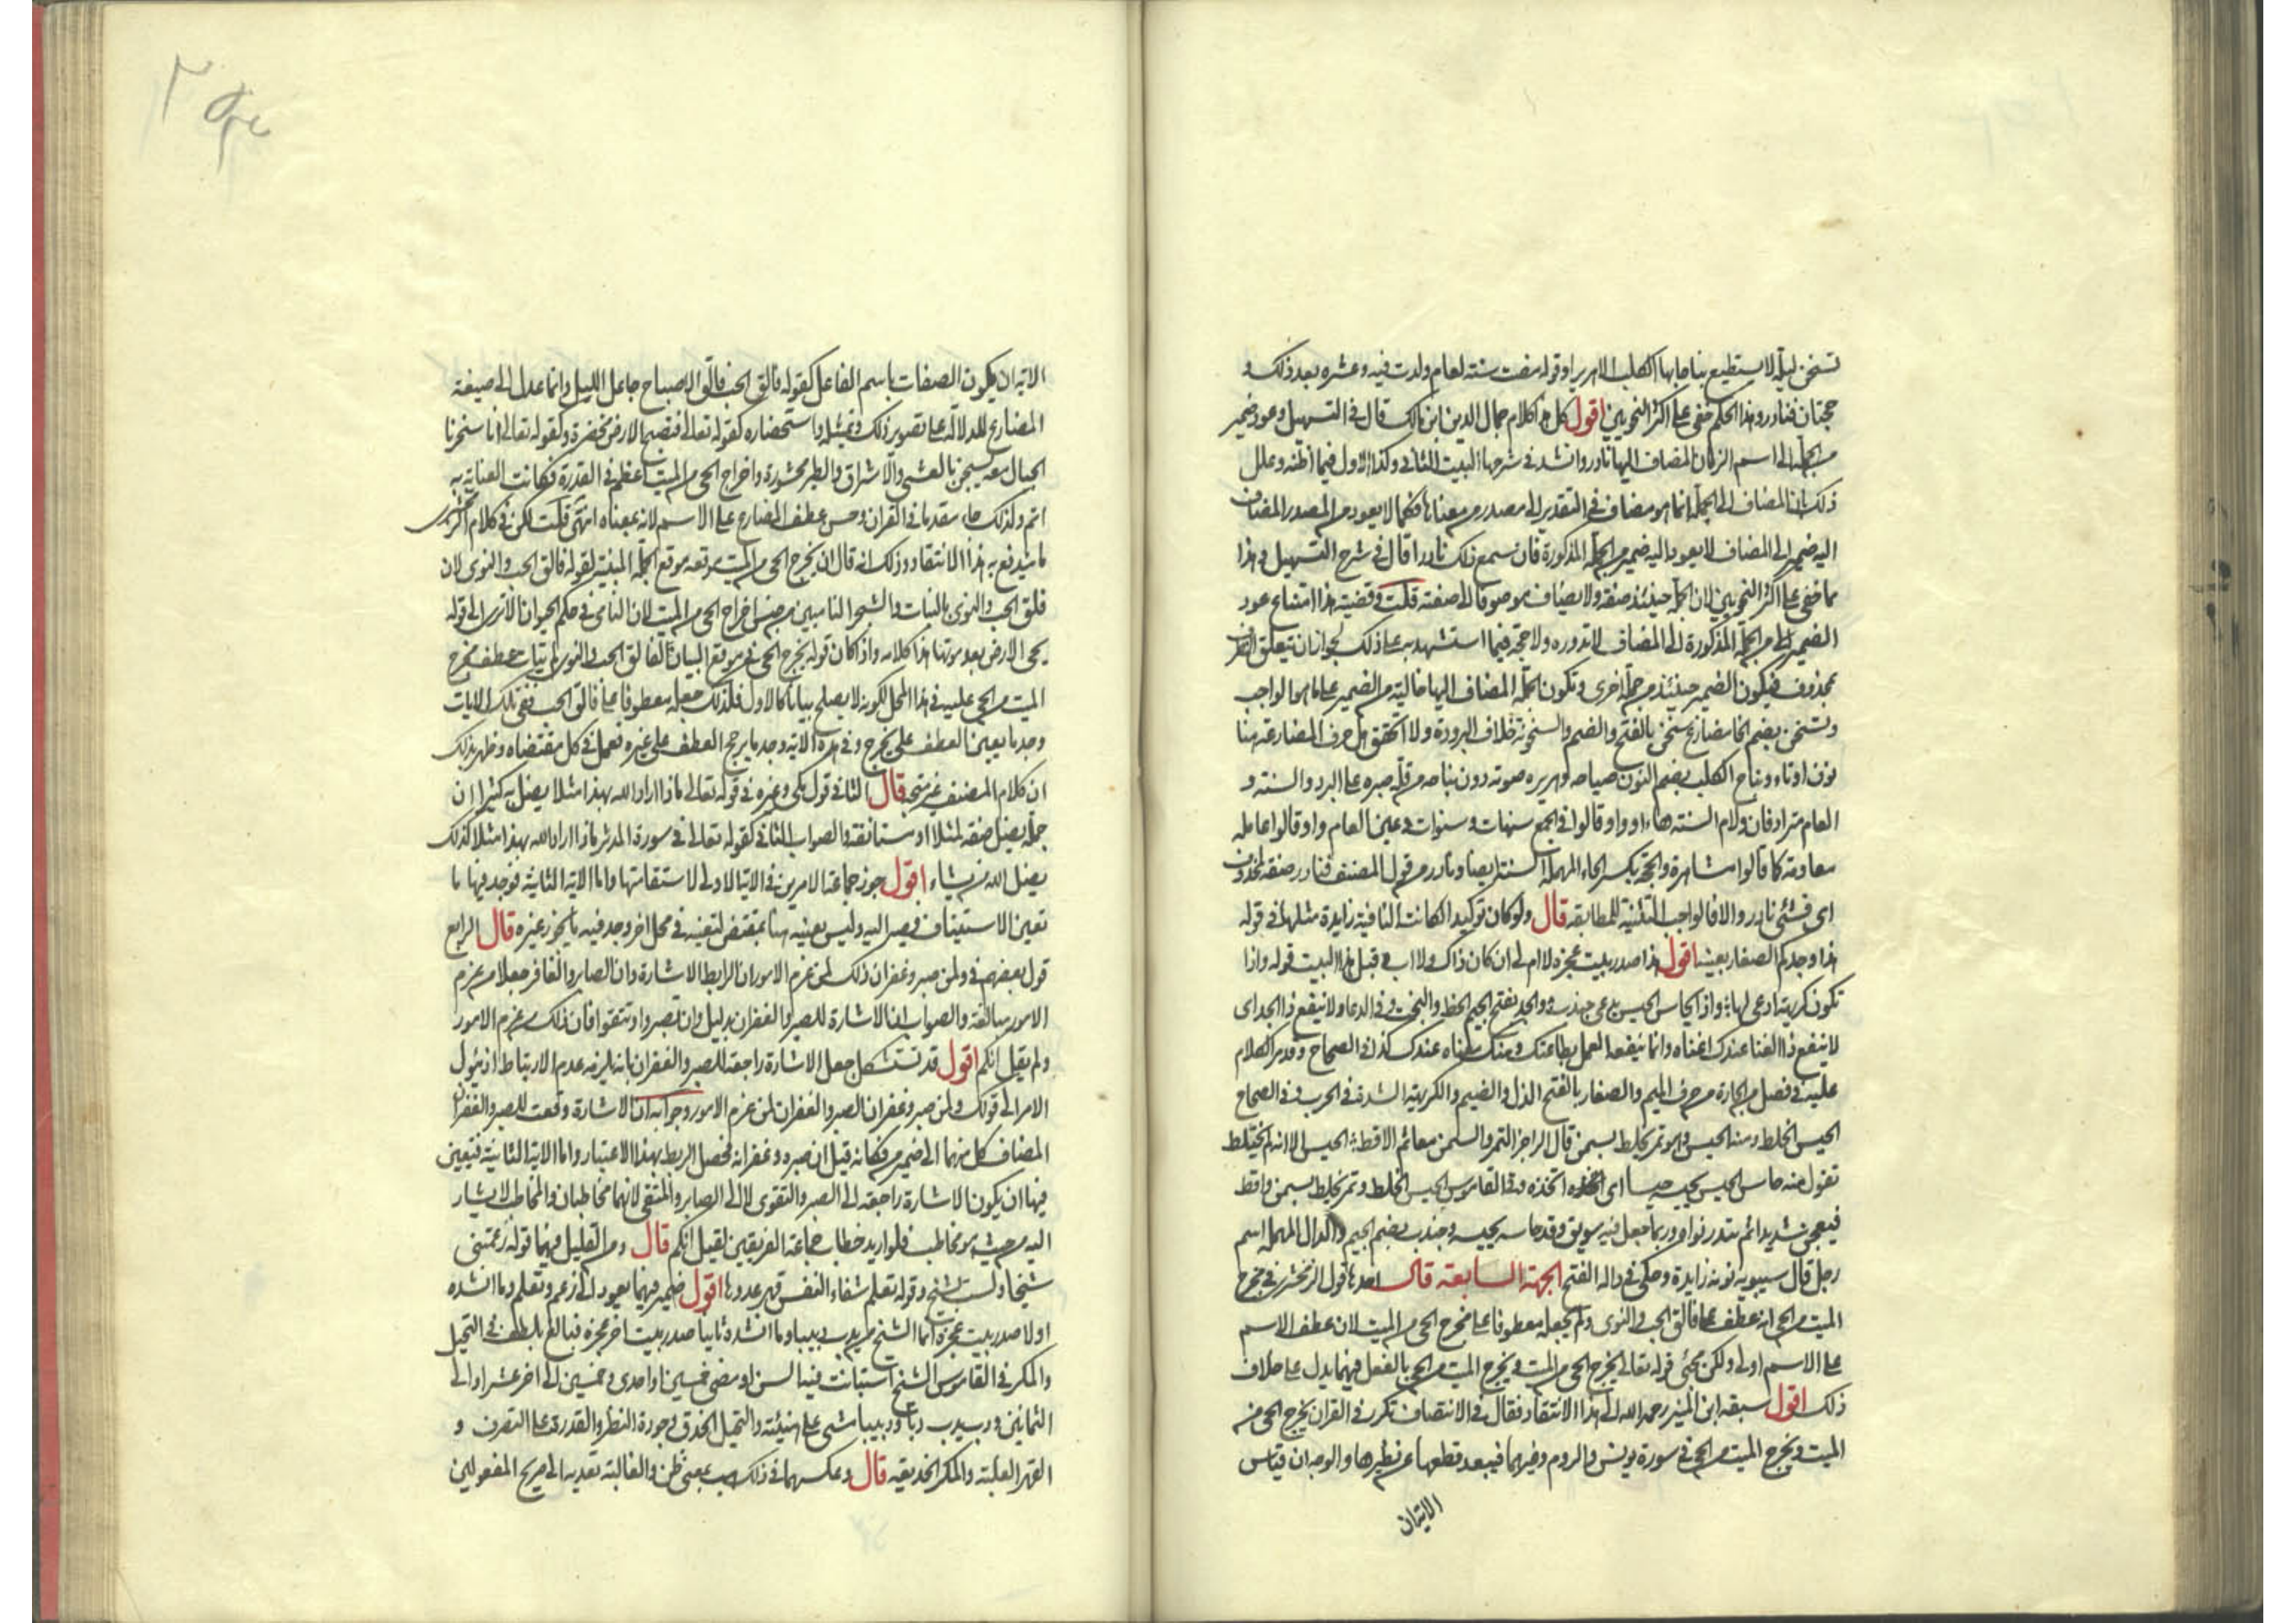 تسخن ليلة لا يستطيع نباحا بها الكلب الا هريرا وقوله مضت سنة لعام ولدت فيه وعشر بعد ذلك و
حجتان فنادر وهذا الحكم خفي على اكثر النحويين اقول كل هذا كلام جمال الدين ابن مالك قال في التسهيل وعود ضمير
من الجملة الى اسم الزمان المضاف اليها نادر وانشد في شرحها البيت الثاني وكذا الاول فيما اظنه وعلل
ذلك بان المضاف الى الجملة انما هو مضاف في التقدير الى مصدر من معناها فكما لا يعود من المصدر المضاف
اليه ضمير الى المضاف لا يعود اليه ضمير من الجملة المذكورة فان سمع ذلك نادرا قال في شرح التسهيل وهذا
مما خفي على اكثر النحويين لان الجملة حينئذ صفة ولا يضاف موصوف الى صفته قلت وقضيته هذا امتناع عود
الضمير من الجملة المذكورة الى المضاف لا ندوره ولا حجة فيما استشهد به على ذلك لجواز ان يتعلق الظرف
بمحذوف فيكون الضمير حينئذ من جملة اخرى وتكون الجملة المضاف اليها خالية من الضمير على ما هو الواجب
وتسخن بضم الخا مضارع سخن بالفتح والضم والسخونة خلاف البرودة ولا اتحقق هل حرف المضارعة هنا
نون او تاء ونباح الكلب بضم النون صياحه وهريره صوته دون نباحه من قلة صبره على البرد والسنة و
العام مترادفان ولام السنة هاء او واو قالوا في الجمع سنهات وسنوات وعين العام واو قالوا عامله
معاومة كما قالوا مشاهرة والحجة بكسر الحاء المهملة السنة ايضا ونادر من قول المصنف فنادر صفة لمحذوف
اى فشئ نادر والا فالواجب التثنية للمطابقه قال ولو كان توكيدا لكانت النافية زايدة مثلها في قوله
هذا وجدكم الصغار بعينه اقول هذا صدر بيت عجزه لا ام لى ان كان ذاك ولا اب وقبل هذا البيت قوله واذا
تكون كريهة ادعى لها؛ واذا يحاس الحيس يدعى جندب؛ والجد بفتح الجيم الحظ والبخت وفي الدعا ولا ينفع ذا الجد اى
لا ينفع ذا الغنا عندك غناه وانما ينفعه العمل بطاعتك ومنك معناه عندك كذا في الصحاح وقد مر الكلام
عليه في فصل من الجارة من حرف الميم والصغار بالفتح الذل والضيم والكريهة الشدة في الحرب وفي الصحاح
الحيس الخلط ومنه الحيس وهو تمر يخلط بسمن قال الراجز التمر والسمن معا ثم الاقط؛ الحيس الا انه لم يختلط
تقول منه حاس الحيس يحيسه حيسا اى اتخذه وفي القاموس الحيس الخلط وتمر يخلط بسمن واقط
فيعجن شديدا ثم يندر نواه وربما جعل فيه سويق وقد حاسه يحيسه وجندب بضم الجيم والدال المهملة اسم
رجل قال سيبويه نونه زايدة وحكى في داله الفتح الجهة السابعة قال احدها قول الزمخشرى في مخرج
الميت من الحى انه عطف على فالق الحب والنوى ولم يجعله معطوفا على يخرج الحى من الميت لان عطف الاسم
على الاسم اولى ولكن مجئ قوله تعالى يخرج الحى من الميت ويخرج الميت من الحى بالفعل فيهما يدل على خلاف
ذلك اقول سبقه ابن المنير رحمه الله الى هذا الانتقاد فقال في الانتصاف تكرر في القران يخرج الحى من
الميت ويخرج الميت من الحى في سورة يونس والروم وغيرهما فيبعد قطعها عن نظيرها والوجه ان قياس
الاية ان
الاية ان يكون الصفات باسم الفاعل كقوله فالق الحب فالق الاصباح جاعل الليل وانما عدل الى صيغة
المضارع للدلالة على تصوير ذلك وتمثيله واستحضاره كقوله تعالى فتصبح الارض مخضرة وكقوله تعالى انا سخرنا
الجبال معه يسبحن بالعشى والاشراق والطير محشورة واخراج الحى من الميت اعظم في القدرة فكانت العناية به
اتم ولذلك جاء مقدما في القران وحسن عطف المضارع على الاسم لانه بمعناه انتهى قلت لكن في كلام الزمخشرى
ما يندفع به هذا الانتقاد وذلك انه قال ان يخرج الحى من الميت موقعه موقع الجملة المبنية لقوله فالق الحب والنوى لان
فلق الحب والنوى بالنبات والشجر الناميين من جنس اخراج الحى من الميت لان النامى في حكم الحيوان الا ترى الى قوله
يحى الارض بعد موتها هذا كلامه واذا كان قوله يخرج الحى موقع البيان لفالق الحب والنوى لم يتات عطف مخرج
الميت من الحى عليه في هذا المحل لكونه لا يصلح بيانا كالاول فلذلك جعله معطوفا على فالق الحب ففى تلك الايات
وجد ما يعين العطف على يخرج وفي هذه الاية وجد ما يرجح العطف على غيره فعمل في كل مقتضاه وظهر بذلك
ان كلام المصنف غير متجه قال الثانى قول مكى وغيره في قوله تعالى ماذا اراد الله بهذا مثلا يضل به كثيرا ان
جملة يضل صفة لمثلا او مستانفة والصواب الثانى كقوله تعالى في سورة المدثر ماذا اراد الله بهذا مثلا كذلك
يضل الله من يشاء اقول جوز جماعة الامرين في الاية الاولى لاستقامتها واما الاية الثانية فوجد فيها ما
تعين الاستيناف فيصير اليه وليس بعينيه هنا بمقتض لتعينه في محل اخر وجد فيه ما يجوز غيره قال الرابع
قول بعضهم في ولمن صبر وغفر ان ذلك لمن عزم الامور ان الرابط الاشارة وان الصابر والغافر جعلا من عزم
الامور مبالغة والصواب ان الاشارة للصبر والغفران بدليل وان تصبروا وتتقوا فان ذلك من عزم الامور
ولم يقل انكم اقول قد تستشكل جعل الاشارة راجعة للصبر والغفران بانه يلزمه عدم الارتباط اذ يئول
الامر الى قولك ولمن صبر وغفر ان الصبر والغفران لمن عزم الامور وجوابه ان الاشارة وقعت للصبر والغفران
المضاف كل منهما الى ضمير من فكانه قيل ان صبره وغفرانه فحصل الربط بهذا الاعتبار واما الاية الثانية فتعين
فيها ان يكون الاشارة راجعة الى الصبر والتقوى لا الى الصابر والمتقى لانهما مخاطبان والمخاطب لا يشار
اليه من حيث هو مخاطب فلو اريد خطاب جماعة الفريقين لقيل انكم قال ومن القليل فيهما قوله زعمتنى
شيخا ولست بشيخ وقوله تعلم شفاء النفس قهر عدوها اقول ضمير فيهما يعود الى زعم وتعلم وما انشده
اولا صدر بيت عجزه انما الشيخ من يدب دبيبا وما انشده ثانيا صدر بيت اخر عجزه فبالغ بلطف في التحيل
والمكر في القاموس الشيخ من استبانت فيه السن او مضى خمسين او احدى وخمسين الى اخر عشر او الى
الثمانين ودب يدب دبا ودبيبا مشى على هينته والتحيل الحذق وجودة النظر والقدرة على التصرف و
القهر الغلبة والمكر الخديعة قال وعكسهما في ذلك هب بمعنى ظن والغالبة تعديه الى صريح المفعولين